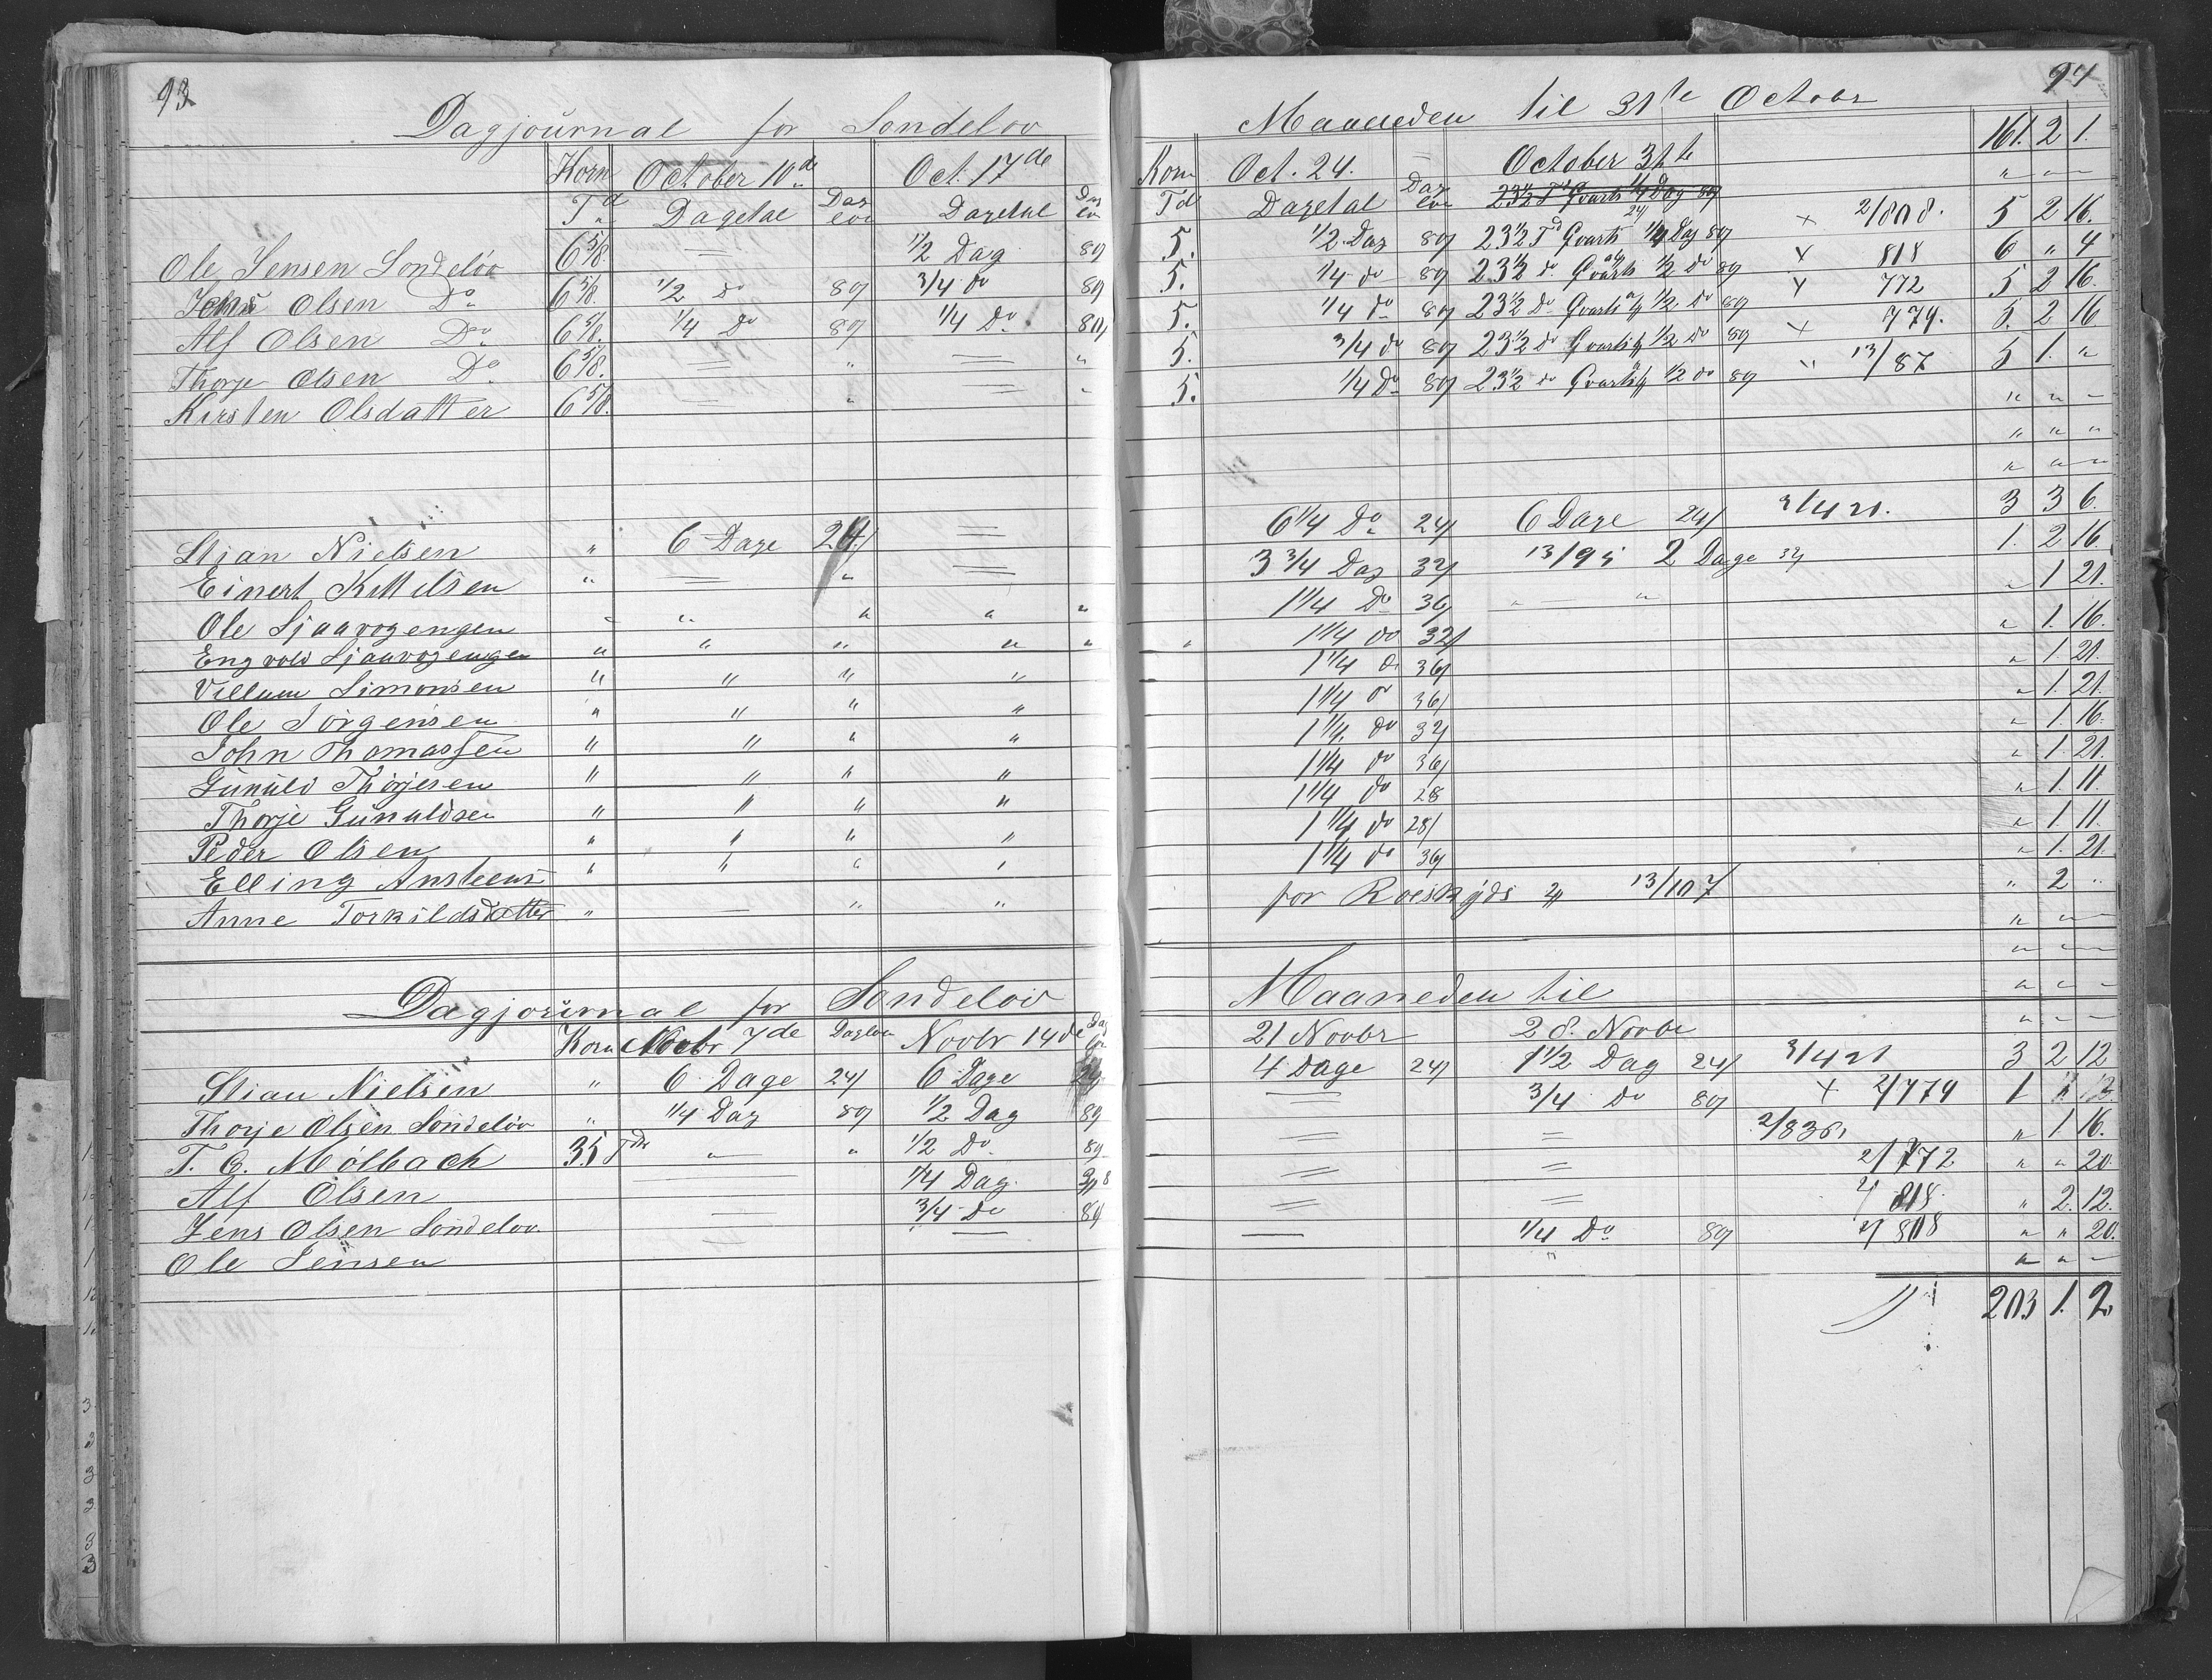 93
Dagjournal for Söndelöv
Korn October 10de Oct. 17de
Td Dagetal Dag löv Dagetal Dag
Ole Jensen Söndelöv 6 5/8. = 1/2 Dag 89
Jens Olsen Do 6 5/8. 1/2 do 89 3/4 do 89
Alf Olsen Do 6 5/8. 1/4 Do 89 1/4 Do. 89
Thorje Olsen Do 6 5/8. = " = "
Kirsten Olsdatter 6 5/8. = " = "
Stian Nielsen " 6 Dage 24 =
Einert Kittelsen " = " =
Ole Sjaavogengen " " " " "
Engvold Sjaavogengen " " " " "
Villum Simonsen " " " "
Ole Jörgensen " " " "
John Thomassen " " " "
Gunuld Thorjesen " " " "
Thorje Gunuldsen " " " "
Peder Olsen " " " "
Elling Ansteens " " " "
Anne Torkildsdatter " — " "
Dagjournal for Söndelöv
Korn Novbr 7de Daglön Novbr 14de
Stian Nielsen " 6 Dage 24/ 6 Dage 24
Thorje Olsen Söndelöv " 1/4 Dag 89 1/2 Dag 89
T. C. Mölbach 35 Tdr " " 1/2 Do 89
Alf Olsen 1/4 Dag
Jens Olsen Söndelöv = 3/4 Do 89
Ole Jensen = —
94
Maaneden til 31te Octobr
161. 2 1.
Korn Oct. 24. = October 31te " — —
Td Dagetal Dag löv
5. 1/2 Dag 89 23 1/2 Td Qvarts 1/4 Dag 89 × 2/808. 5 2 16.
5. 1/4 do 89 23 1/2 do Qvarts 1/2 do 89 × 818 6 " 4
5. 1/4 do 89 23 1/2 Do Qvarts 1/2 Do 89 × 772 5 2 16.
5. 3/4 do 89 23 1/2 do Qvarts 1/2 do 89 × 779. 5. 2 16
5. 1/4 Do 89 23 1/2 do Qvarts 1/2 do 89 " 13/87 5 1. "
" " —
" " "
" " —
6 1/4 Do 24/ 6 Dage 24/ 3/421. 3 3 6.
3 3/4 Dag 32/ 13/95 2 Dage 32/ 1. 2 16.
1 1/4 Do 36/ " — " " 1 21.
" 1 1/4 do 32/ " 1. 16.
1 1/4 do 36/ " 1 21.
1 1/4 do 36/ " 1. 21.
1 1/4. do 32/ " 1. 16.
1 1/4 do 36/ " 1. 21.
1 1/4 do 28 " 1. 11.
1 1/4 do 28/ " 1 11.
1 1/4 do 36/ " 1. 21.
for Roeskyds 13/107 " 2 "
" " —
" " —
Maaneden til " " —
21 Novbr 28. Novbr " — —
4 Dage 24/ 1 1/2 Dag 24/ 3/421 3 2 12
— 3/4 Do 89 × 2/779 1 "
= = 2/836, " 1. 16.
= = 2/772 " " 20
= = 2/ 818. " 2. 12.
— 1/4 Do 89 2/808 " " 20.
" " " —
203 1. 2.